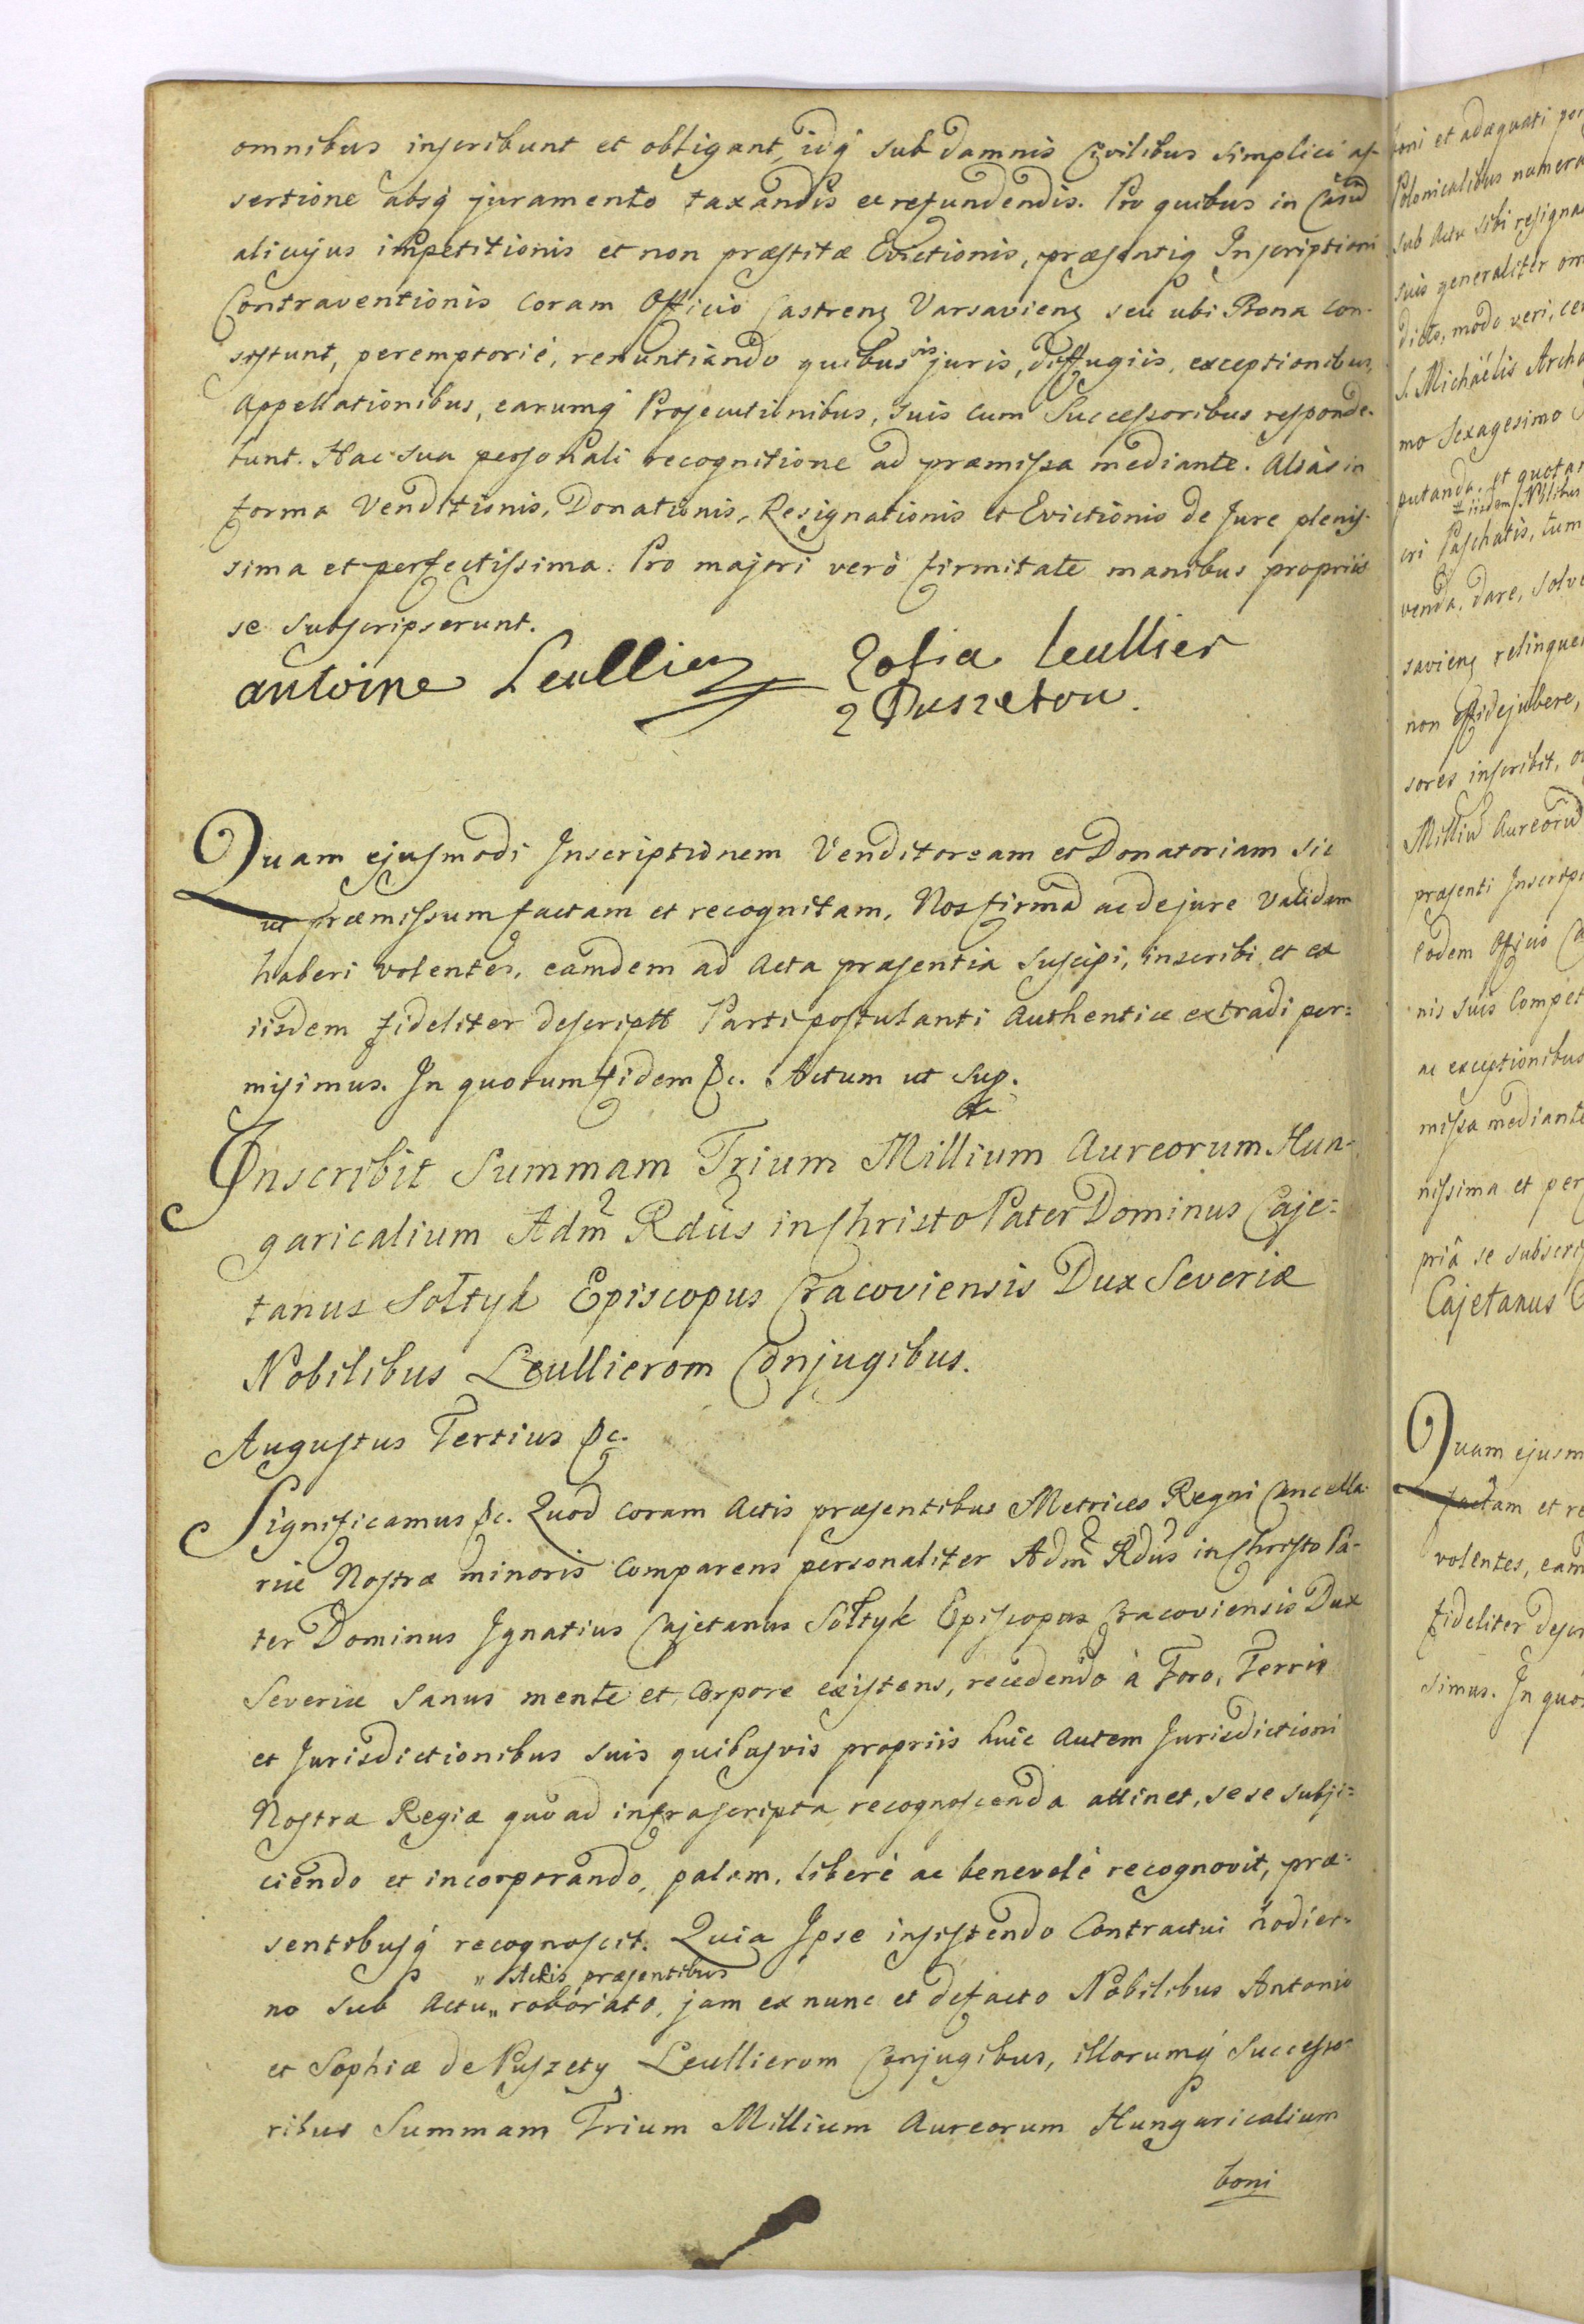 omnibus inscribunt et obligant, idq̃ sub damnis Civilibus simplici as-
sertione absq̃ juramento taxandis et refundendis. Pro quibus in Casu
alicujus impetitionis et non præstitæ Evictionis, præsentiq Inscriptioni
Contraventionis coram Officio Castren̄ Varsavien̄ seu ubi Bona con-
sistunt, peremptoriè, renuntiando quibus vis juris, diffugiis, exceptionibus,
Appellationibus, earumq̃ Prosecutionibus, suis cum Successoribus responde-
bunt. Hac sua personali recognitione ad præmissa mediante. Aliàs in
forma Venditionis, Donationis, Resignationis et Evictionis de Jure plenis-
sima et perfectissima. Pro majori verò firmitate manibus propriis
se subscripserunt.
antoine Leullier Zofia Leullier
z Puszetow.
Quam ejusmodi Inscriptionem Venditoream et Donatoriam sic
ut præmissum factam et recognitam, Nos firmā ac de jure validam
haberi volentes, eamdem ad Acta præsentia suscipi, inscribi et ex
iisdem fideliter descriptt Parti postulanti Authentice extradi per=
misimus. In quorum fidem &c. Actum ut sup.
Inscribit Summam Trium Millium Aureorum Hun-
garicalium Adm̄ Rdūs in Christo Pater Dominus Caje=
tanus Sołtyk Episcopus Cracoviensis Dux Severiæ
Nobilibus Leullierom Conjugibus.
Augustus Tertius &c.
Significamus &c. Quod coram Actis præsentibus Metrices Regni Cancella-
riæ Nostræ minoris Comparens personaliter Adm̄ Rdūs in Christo Pa-
ter Dominus Ignatius Cajetanus Sołtyk Episcopus Cracoviensis Dux
Severiæ sanus mente et Corpore existens, recedendo à Foro, Terris
et Jurisdictionibus suis quibusvis propriis huic autem Jurisdictioni
Nostræ Regiæ quo ad infrascripta recognoscenda attinet, se se subji=
ciendo et incorporando, palam, liberè ac benevolè recognovit, præ=
sentibusq̃ recognoscit. Quia Ipse insistendo Contractui hodier-
„ Actis præsentibus
no sub Actu „ roborato, jam ex nunc et defacto Nobilibus Antonio
et Sophiæ de Puszety Leullierom Conjugibus, illorumq̃ Successo-
ribus Summam Trium Millium Aureorum Hungaricalium
boni
boni et adæquati
Polonicalibus
sub Actu sibi
suis generaliter
dicto, modo veri,
S. Michaëlis
mo Sexagesimo
putanda, et
iisdem Nobilibus
cri Paschatis, tum
venda, dare,
savien̄
non
sores inscribit,
Milliū Aureorū
præsenti
eodem Officio
nis suis
ac exceptionibus
missa mediante
nissima et
priâ se
Cajetanus
Quam
factam et
volentes,
fideliter
simus. In